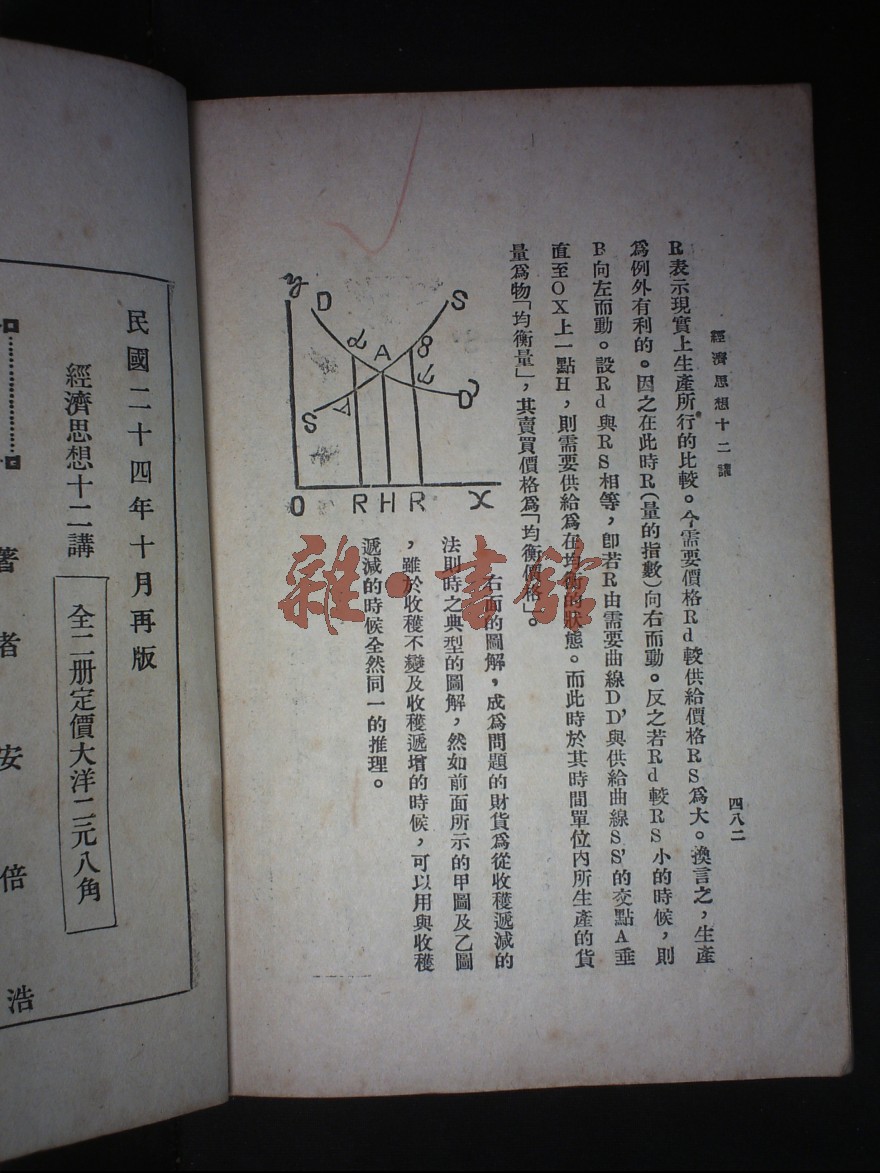 經濟思想十二講
四八二
R表示現實上生產所行的比較。今需要價格Rd較供給價格RS爲大。換言之，生產
爲例外有利的。因之在此時R(量的指數)向右而動。反之若Rd較RS小的時候，則
B向左而動。設Rd與RS相等，卽若R由需要曲線DD'與供給曲線SS'的交點A垂
直至OX上一點H，則需要供給爲在均衡的狀態。而此時於其時間單位內所生產的貨
量爲物「均衡量」，其賣買價格爲「均衡價格」。
右面的圖解，成爲問題的財貨爲從收穫遞減的
法則時之典型的圖解，然如前面所示的甲圖及乙圖
，雖於收穫不變及收穫遞增的時候，可以用與收穫
遞減的時候全然同一的推理。
y
D
S
d
A
S
D'
O
R
H
R
X
雜·書館
民國二十四年十月再版
經濟思想十二講
全二册定價大洋二元八角
著者安倍浩